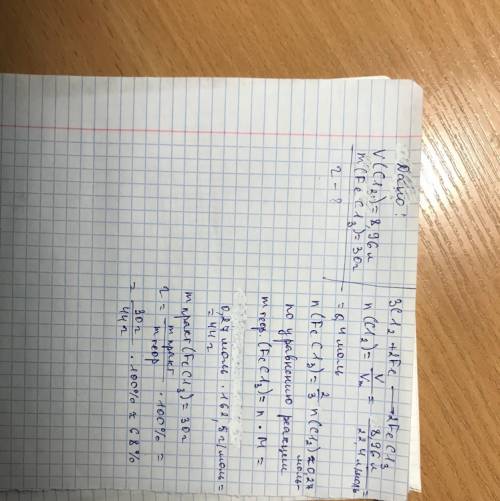 Дано:
V(Cl2)=8,96л
m(FeCl3)=30г
η - ?
3Cl2 + 2Fe → 2FeCl3
n(Cl2) = V/Vm = 8,96л/22,4л/моль =
= 0,4 моль
n(FeCl3) = 2/3 n(Cl2) ≈ 0,27 моль -
по уравнению реакции
m теор. (FeCl3) = n · M =
0,27 моль · 162,5 г/моль =
= 44г
m практ (FeCl3) = 30г
η = m практ/m теор · 100% =
= 30г/44г · 100% ≈ 68%